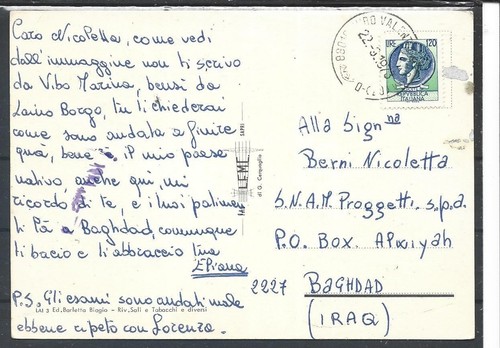 Cara Nicoletta, come vedi
dall'immaggine non ti scrivo
da Vibo Marina, bensì da
Laino Borgo, tu ti chiederai
come sono andata a finire
quà, bene è il mio paese
nativo, anche qui, mi
ricordo di te, e i tuoi
lì a Baghdad, comunque
ti bacio e ti abbraccio tua
Eliana
P.S. Gli esami sono andati male
ebbene ripeto con Lorenzo.
(AI) 3 Ed. Barletta Biagio - Riv. Sali e Tabacchi e diversi
LEME
di G. Campoglio
22-8-19
LIRE 120
REPVBBLICA
ITALIANA
Alla Sign.na
Berni Nicoletta
S.N.A.M. Proggetti. s.p.a.
P.O. Box. Alwiyah
2227 BAGHDAD
(IRAQ)